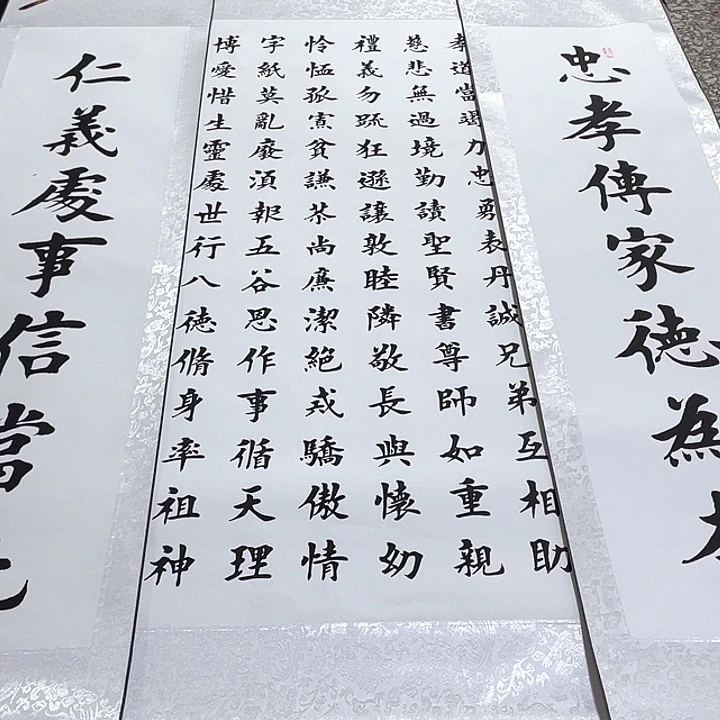 忠孝傳家徳為
孝道當竭力忠勇表丹誠兄弟互相助
慈悲無過境勤讀聖賢書尊師如重親
禮義勿疏狂遜讓敦睦隣敬長與懷幼
怜恤孤寡貧謙恭尚廉潔絕戒驕傲情
字紙莫亂廢須報五谷恩作事循天理
博愛惜生靈處世行八徳脩身率祖神
仁義處事信當